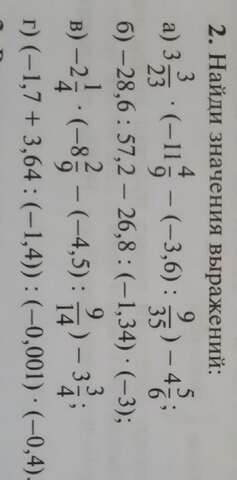 2. Найди значения выражений:
а) 3 3/23 · (−11 4/9 − (−3,6) : 9/35) − 4 5/6;
б) −28,6 : 57,2 − 26,8 : (−1,34) · (−3);
в) −2 1/4 · (−8 2/9 − (−4,5) : 9/14) − 3 3/4;
г) (−1,7 + 3,64 : (−1,4)) : (−0,001) · (−0,4).